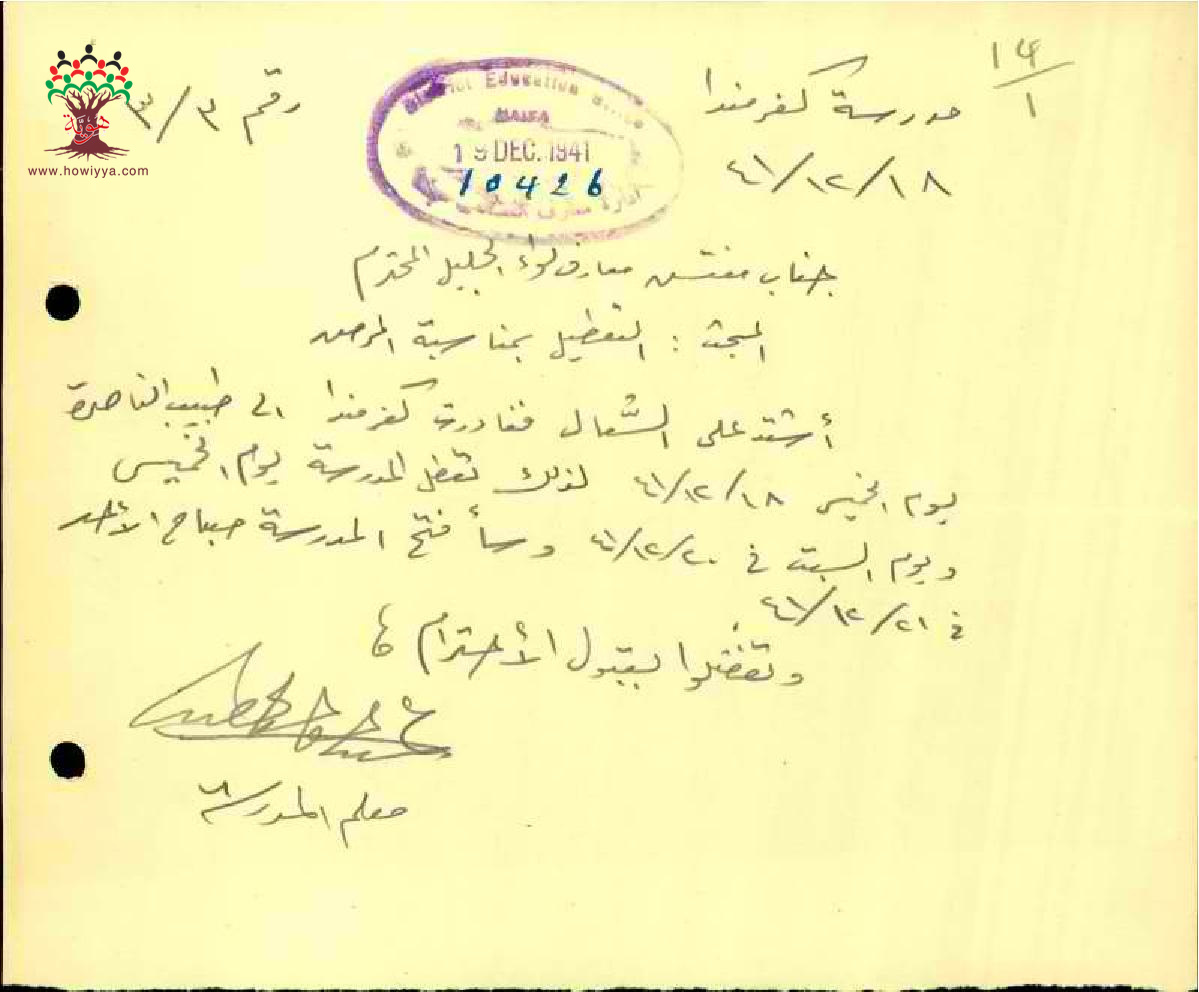 ١٤/١
مدرسة كفرمندا
رقم ٣/٣
٤١/١٢/١٨
هويّة
www.howiyya.com
District Education Office
HAIFA
19 DEC. 1941
10426
ادارة معارف
جناب مفتش معارف لواء الجليل المحترم
المبحث : التعطيل بمناسبة المرض
أشتد علي السُّعال فغادرت كفرمندا الى طبيب الناصرة
يوم الخميس ٤١/١٢/١٨ لذلك تعطل المدرسة يوم الخميس
ويوم السبت في ٤١/١٢/٢٠ وسأفتح المدرسة صباح الأحد
في ٤١/١٢/٢١.
وتفضلوا بقبول الأحترام
معلم المدرسة